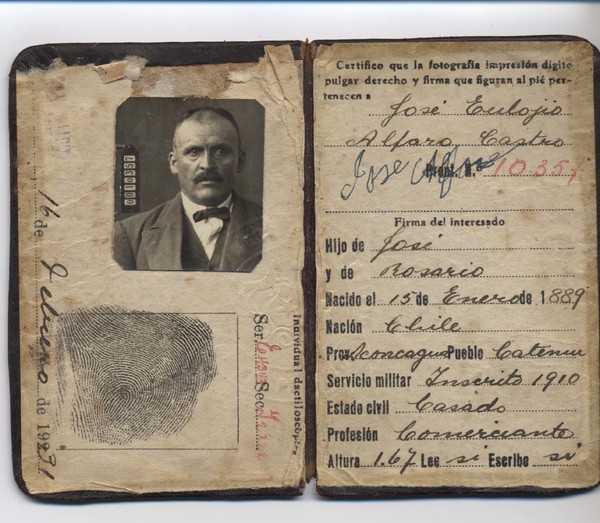 16 de Febrero de 1921
Individual dactiloscópica
Ser. Sec.
Certifico que la fotografía impresión dígito
pulgar derecho y firma que figuran al pié per-
tenecen a José Eulojio
Alfaro Castro
José Alfaro
Pront. N.º 1035,
Firma del interesado
Hijo de José
y de Rosario
Nacido el 15 de Enero de 1889
Nación Chile
Prov. Aconcagua Pueblo Catemu
Servicio militar Inscrito 1910
Estado civil Casado
Profesión Comerciante
Altura 1.67 Lee si Escribe si